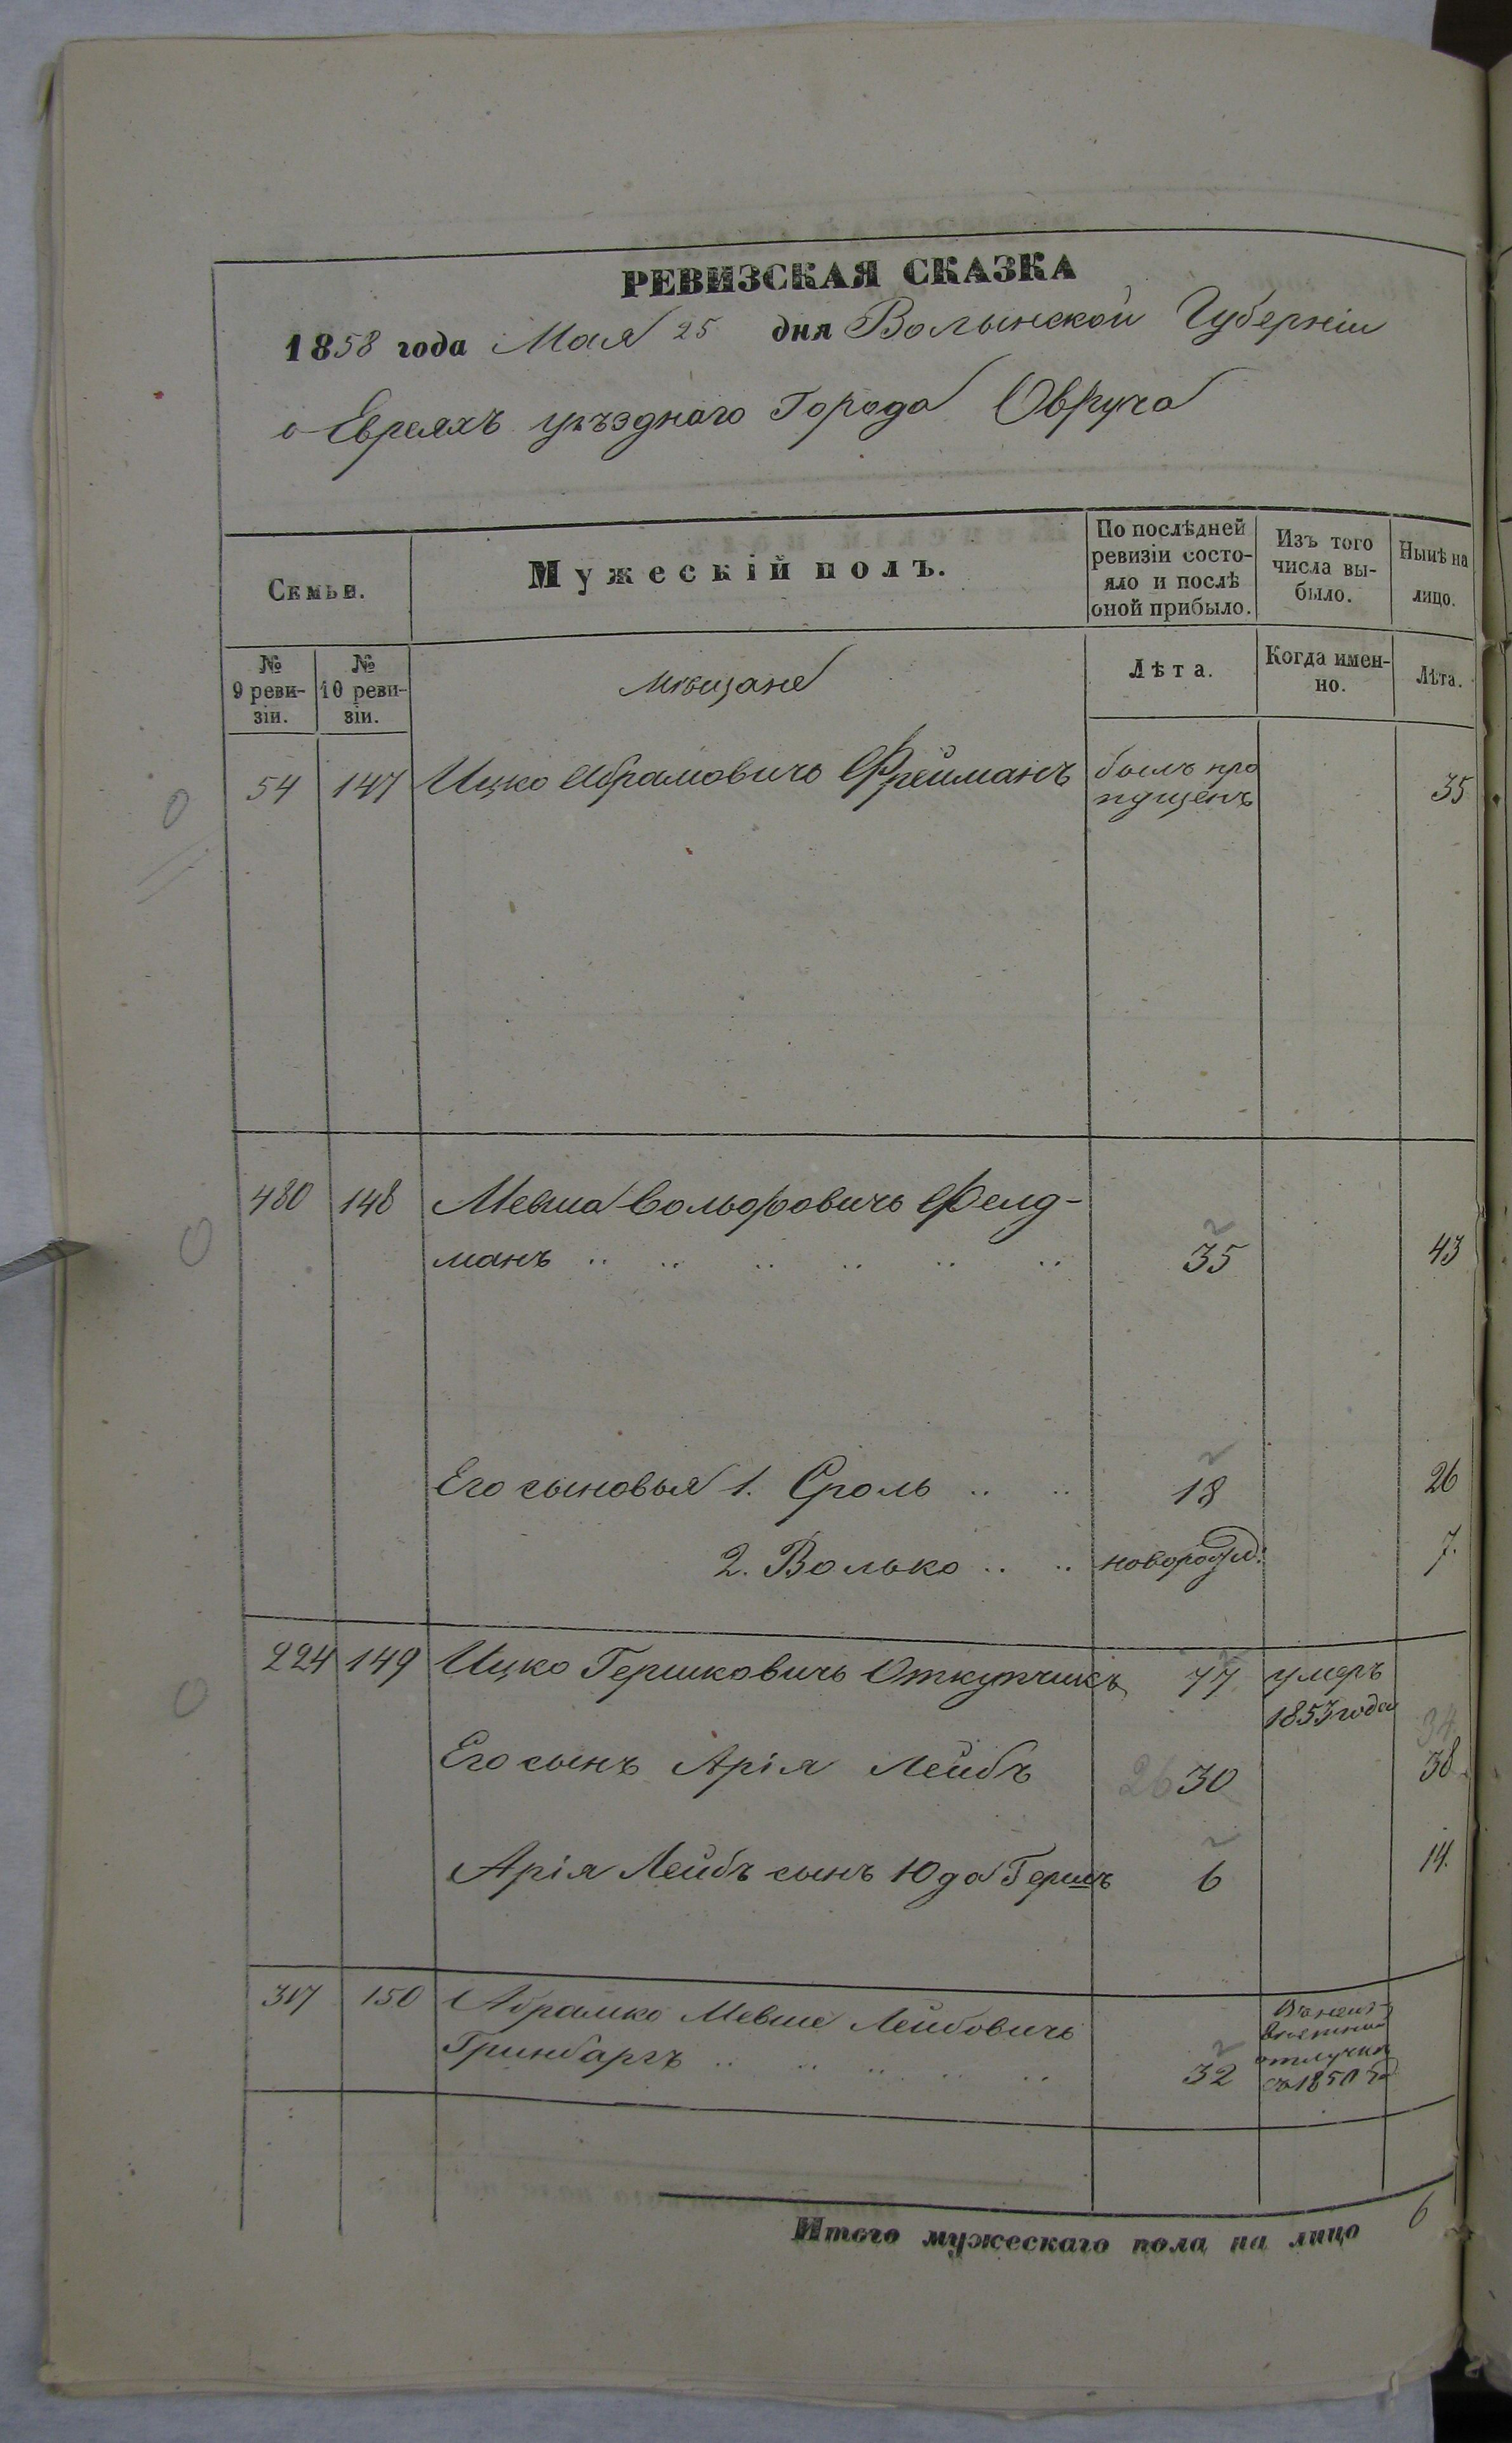 РЕВИЗСКАЯ СКАЗКА
1858 года Мая 25 дня Волынской Губерніи
о Евреяхъ уѣзднаго Города Овруча
Семьи.
Мужескій полъ.
По послѣдней
ревизіи состо-
яло и послѣ
оной прибыло.
Изъ того
числа вы-
было.
Нынѣ на
лицо.
№
9 реви-
зіи.
№
10 реви-
зіи.
Мѣщане
Лѣта.
Когда имен-
но.
Лѣта.
54 147 Ицко Абрамовичъ Фрейманъ былъ про
пущенъ 35
480 148 Мевша Вольфовичъ Фелд-
манъ .. .. .. .. .. .. 35 43
Его сыновья 1. Сроль .. .. 18 26
2. Волько .. .. новорожд: 7.
224 149 Ицко Гершковичъ Откупчикъ 77 умеръ
1853 года
34
Его сынъ Арія Лейбъ 26 30 38
Арія Лейбъ сынъ Юда Гершъ 6 14.
317 150 Абрамко Мевше Лейбовичъ
Гринбаргъ .. .. .. .. .. 32
отлучки
съ 1850
Итого мужескаго пола на лицо 6